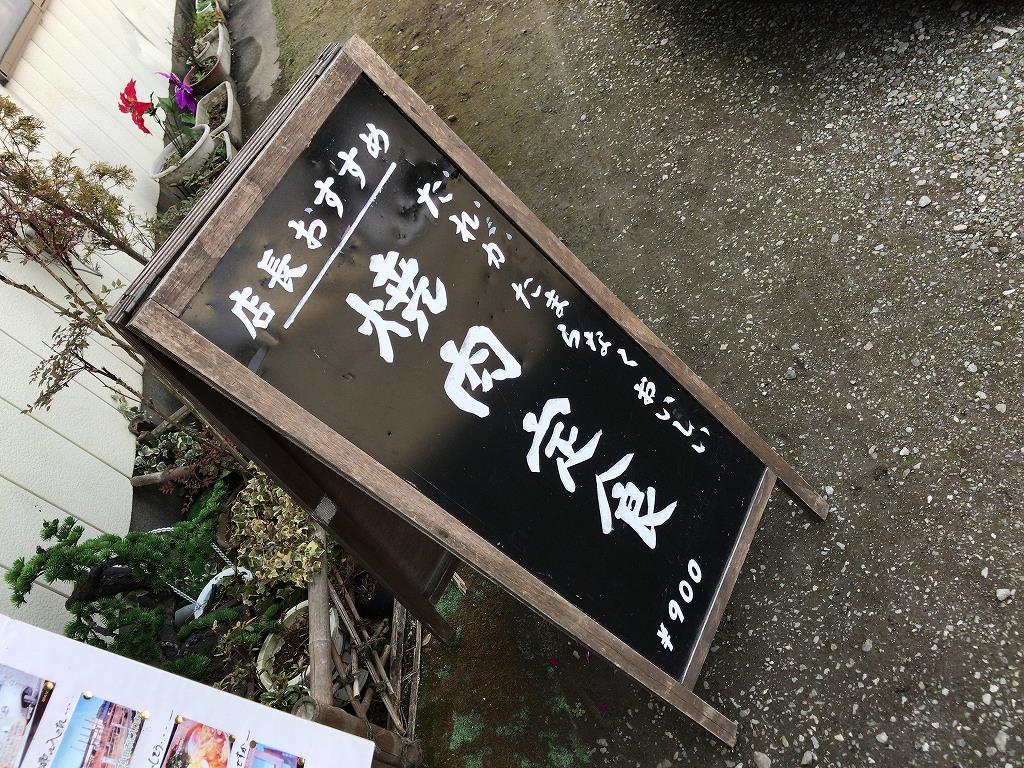 店長おすすめ
だれがたまらな〜おいしい
焼肉定食
¥900